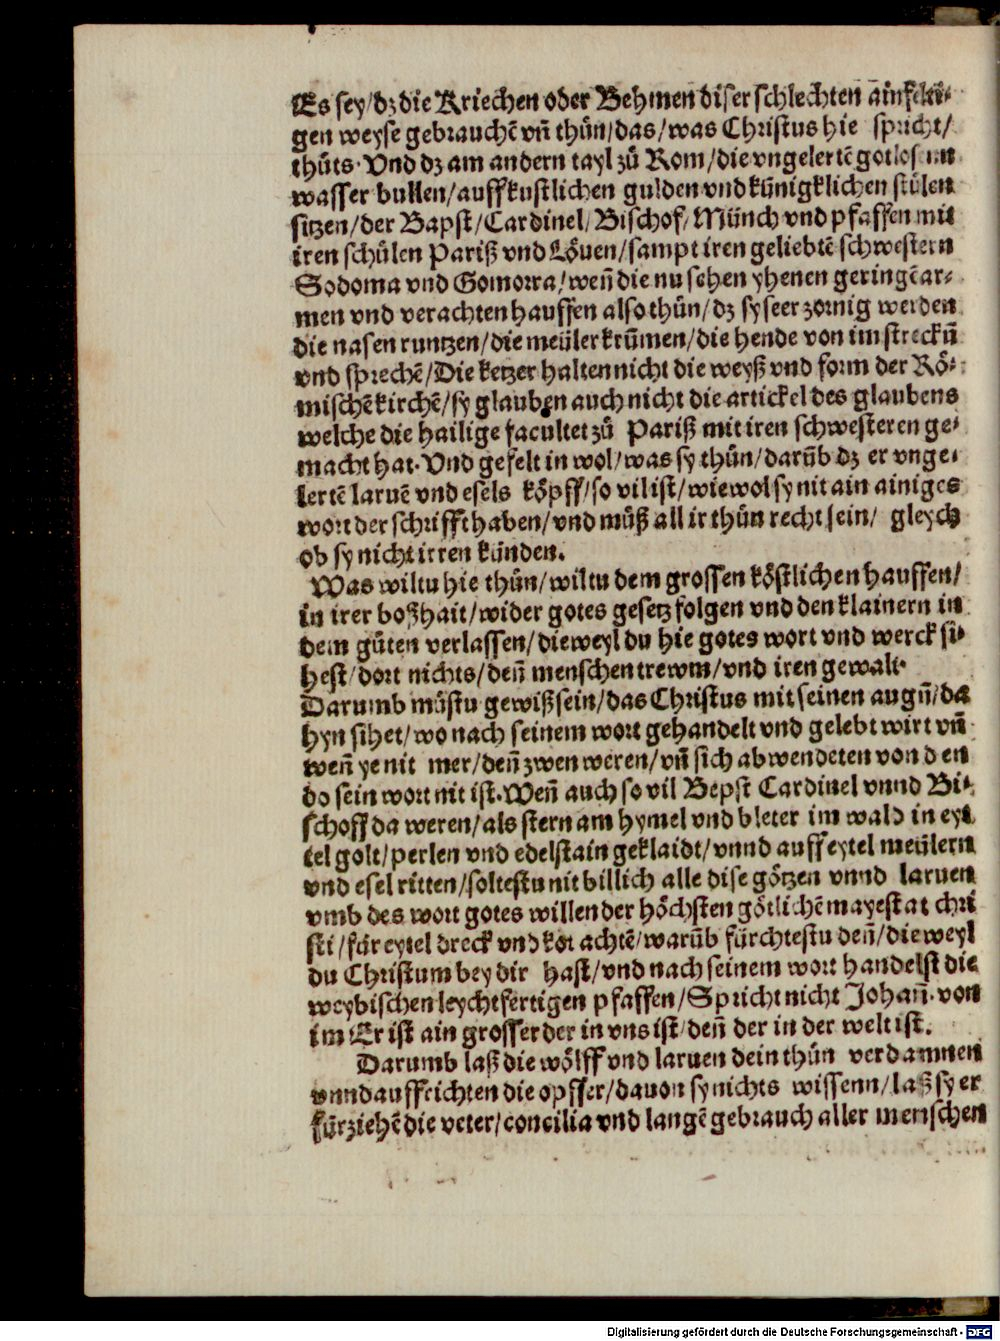 Es sey/dz die Kriechen oder Behmen diser schlechten ainfelti⸗
gen weyse gebrauchē vñ thůn/das/was Christus hie spricht/
thůts. Vnd dz am andern tayl zů Rom/die vngelertē gotlosen
wasser bullen/auff kustlichen gulden vnd künigklichen stůlen
sitzen/der Bapst/Cardinel/Bischof/Münch vnd pfaffen mit
iren schůlen Pariß vnd Löuen/sampt iren geliebtē schwestern
Sodoma vnd Gomorra/weñ die nu sehen yhenen geringē ar⸗
men vnd verachten hauffen also thůn/dz sy seer zornig werden
die nasen runtzen/die meüler krümen/die hende von im streckñ
vnd sprechē/Die ketzer halten nicht die weyß vnd form der Rö⸗
mischē kirchē/sy glauben auch nicht die artickel des glaubens
welche die hailige facultet zů Pariß mit iren schwesteren ge⸗
macht hat. Vnd gefelt in wol/was sy thůn/darūb dz er vnge⸗
lertē laruē vnd esels köpff/so vil ist/wiewol sy nit ain ainiges
wort der schrifft haben/vnd můß all ir thůn recht sein/ gleych
ob sy nicht irren künden.
Was wiltu hie thůn/wiltu dem grossen köstlichen hauffen/
in irer boßhait/wider gotes gesetz folgen vnd den klainern in
dem gůten verlassen/dieweyl du hie gotes wort vnd werck si⸗
hest/dort nichts/deñ menschen trewm/vnd iren gewalt.
Darumb můstu gewiß sein/das Christus mit seinen augñ/da
hyn sihet/wo nach seinem wort gehandelt vnd gelebt wirt vñ
weñ ye nit mer/deñ zwen weren/vñ sich abwendeten von den
do sein wort nit ist. Weñ auch so vil Bepst Cardinel vnnd Bi⸗
schoff da weren/als stern am hymel vnd bleter im wald in eyt
tel golt/perlen vnd edelstain geklaidt/vnnd auff eytel meülern
vnd esel ritten/soltestu nit billich alle dise götzen vnnd laruen
vmb des wort gotes willen der höchsten götlichē mayestat chri
sti/für eytel dreck vnd kot achtē/warūb fürchtestu deñ/die weyl
du Christum bey dir hast/vnd nach seinem wort handelst die
weybischen leychtfertigen pfaffen/Spricht nicht Johañ. von
im Er ist ain grosser der in vns ist/deñ der in der welt ist.
Darumb laß die wölff vnd laruen dein thůn verdammen
vnnd auffrichten die opffer/dauon sy nichts wissenn/laß sy er
fürziehē die veter/concilia vnd langē gebrauch aller menschen
Digitalisierung gefördert durch die Deutsche Forschungsgemeinschaft - DFG